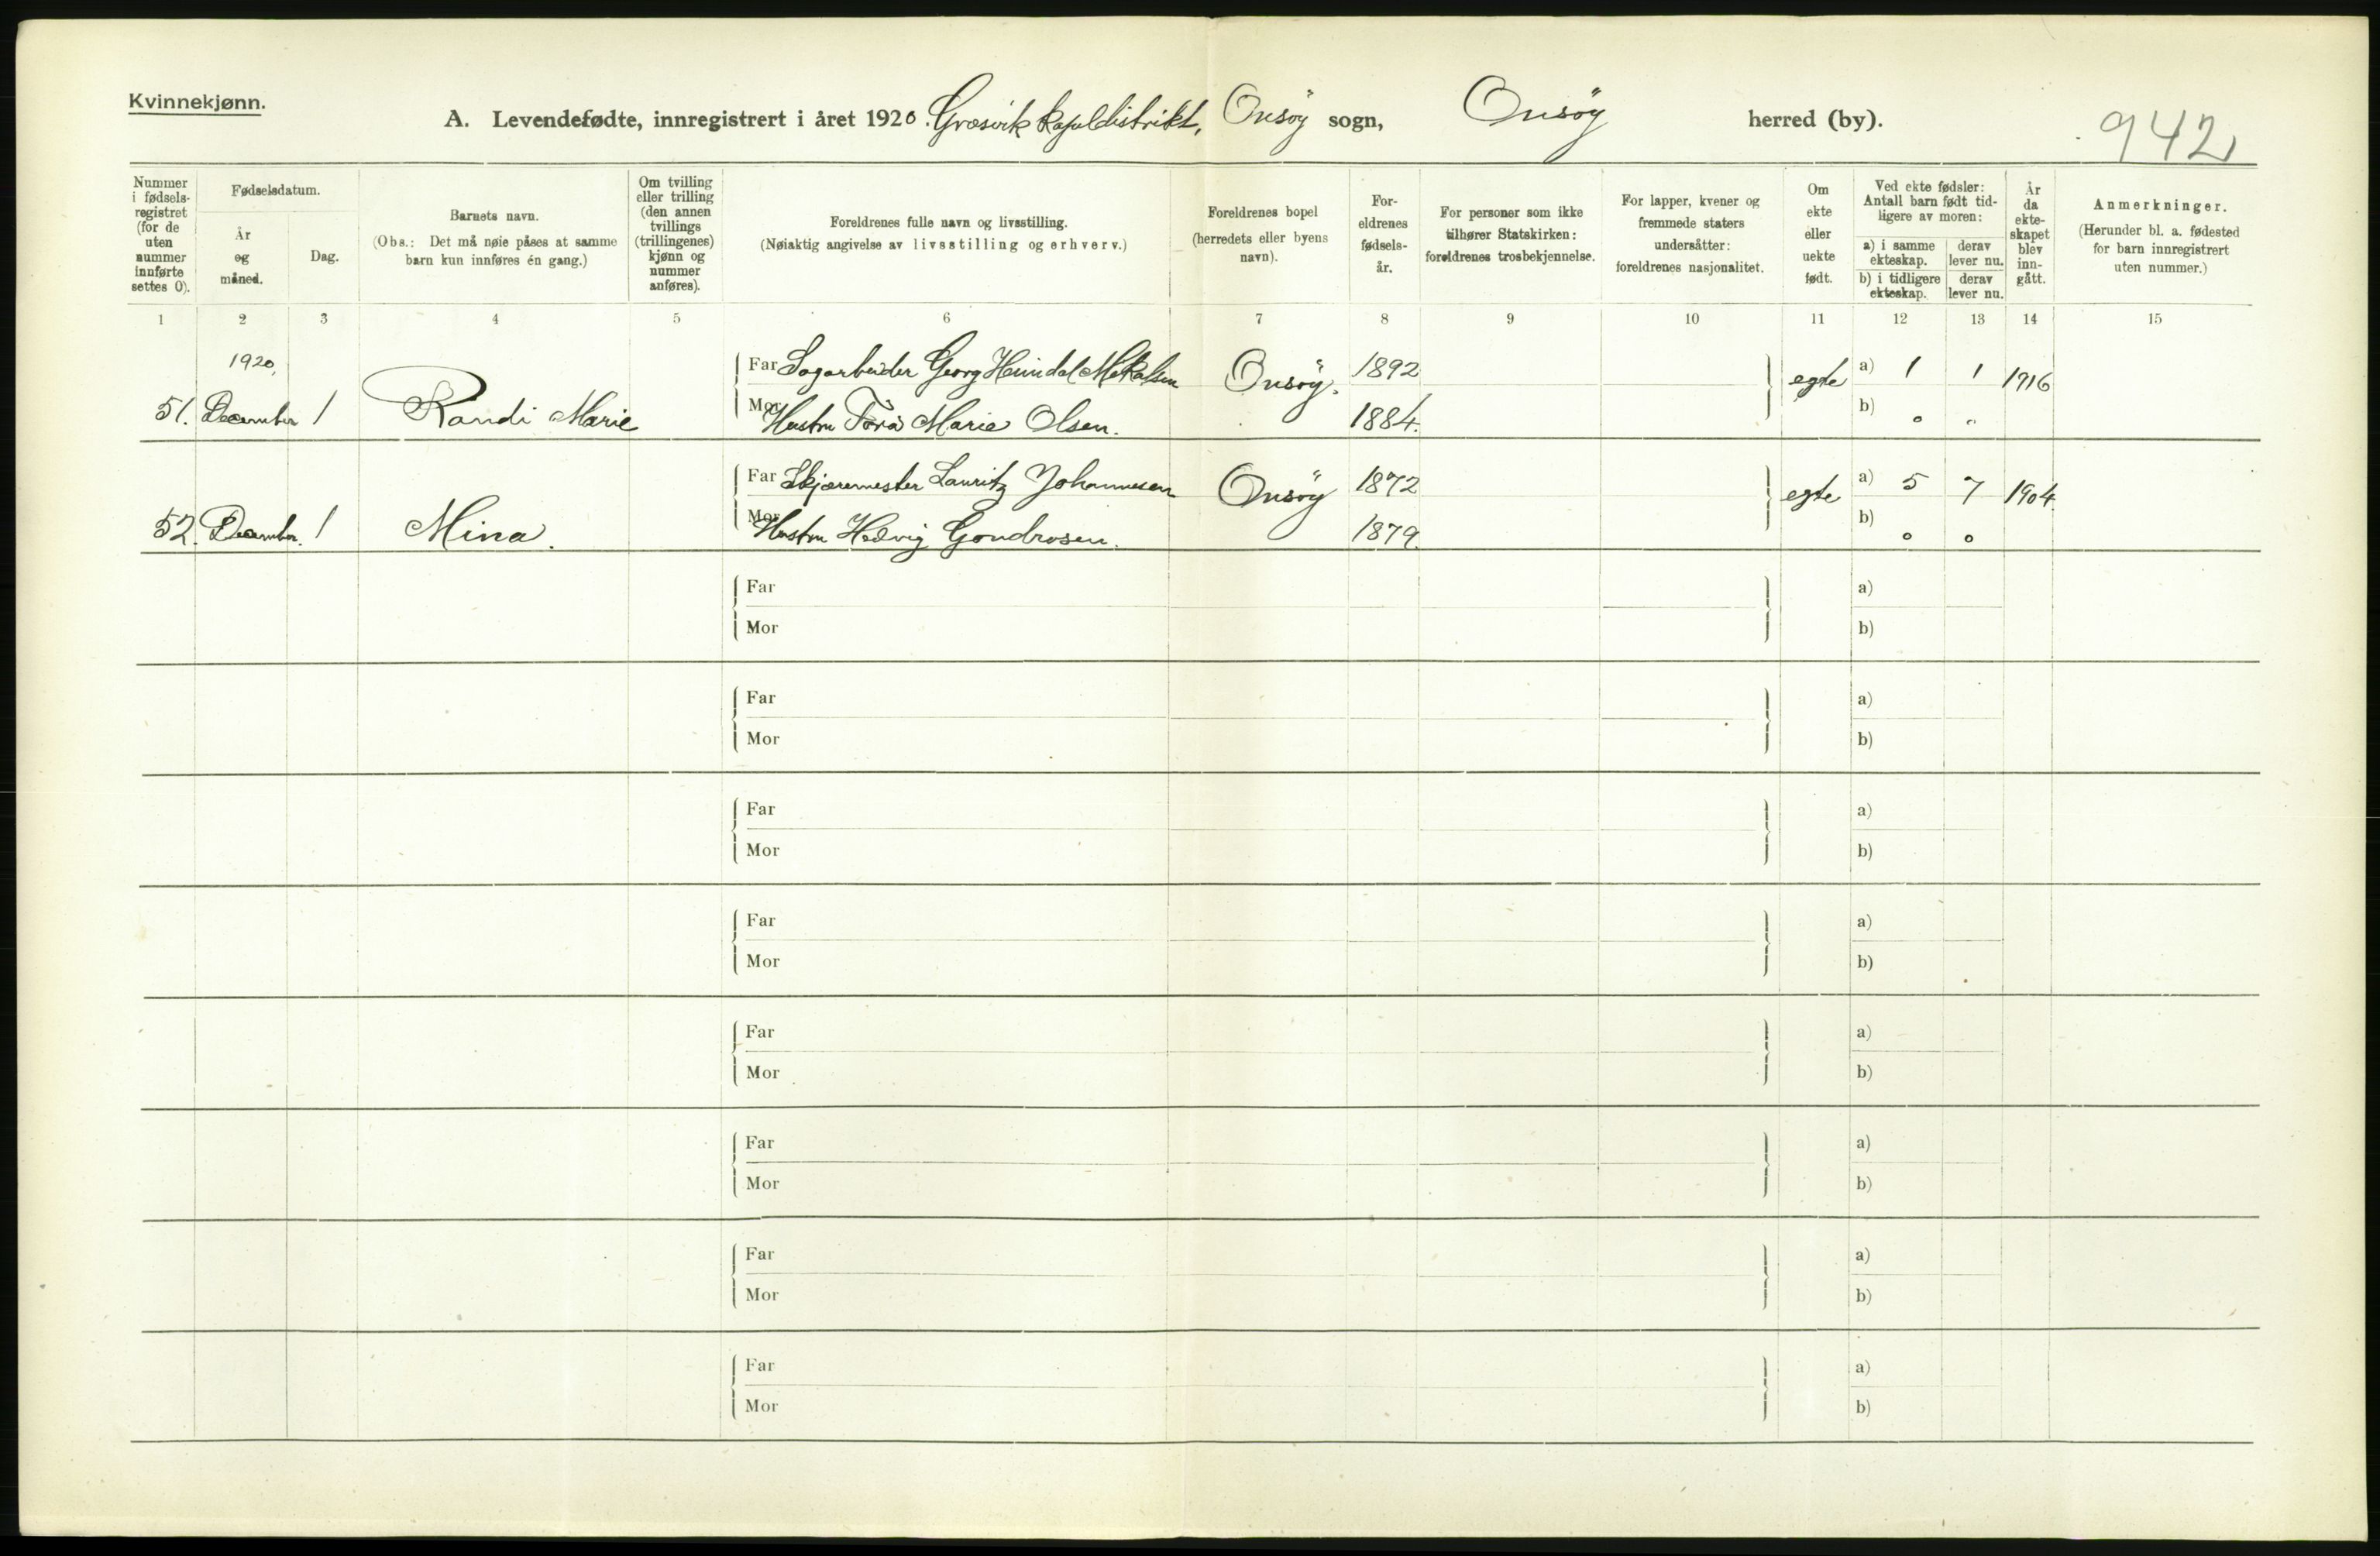 Kvinnekjønn.
A. Levendefødte, innregistrert i året 1920. Græsvik kapeldistrikt, Onsöy sogn, Onsöy herred (by).
942
Nummer i fødsels-registret (for de uten nummer innførte settes 0).
Fødselsdatum.
År og måned.
Dag.
Barnets navn.
(Obs.: Det må nøie påses at samme barn kun innføres én gang.)
Om tvilling eller trilling (den annen tvillings (trillingenes) kjønn og nummer anføres).
Foreldrenes fulle navn og livsstilling.
(Nøiaktig angivelse av livsstilling og erhverv.)
Foreldrenes bopel (herredets eller byens navn).
For-eldrenes fødsels-år.
For personer som ikke tilhører Statskirken: foreldrenes trosbekjennelse.
For lapper, kvener og fremmede staters undersåtter: foreldrenes nasjonalitet.
Om ekte eller uekte født.
Ved ekte fødsler: Antall barn født tid-ligere av moren:
a) i samme ekteskap.
derav lever nu.
b) i tidligere ekteskap.
derav lever nu.
År da ekte-skapet blev inn-gått.
Anmerkninger.
(Herunder bl. a. fødested for barn innregistrert uten nummer.)
1 2 3 4 5 6 7 8 9 10 11 12 13 14 15
1920,
Far Sagarbeider Georg Heimdal Mikalsen Onsöy. 1892 egte a) 1 1 1916
51. December 1 Randi Marie
Mor Hustru Tora Marie Olsen. 1884. b) 0 0
Far Skjæremester Lauritz Johannesen Onsöy 1872 egte a) 5 7 1904.
52. December. 1 Mina.
Mor Hustru Hedvig Gondrosen. 1879. b) 0 0
Far a)
Mor b)
Far a)
Mor b)
Far a)
Mor b)
Far a)
Mor b)
Far a)
Mor b)
Far a)
Mor b)
Far a)
Mor b)
Far a)
Mor b)